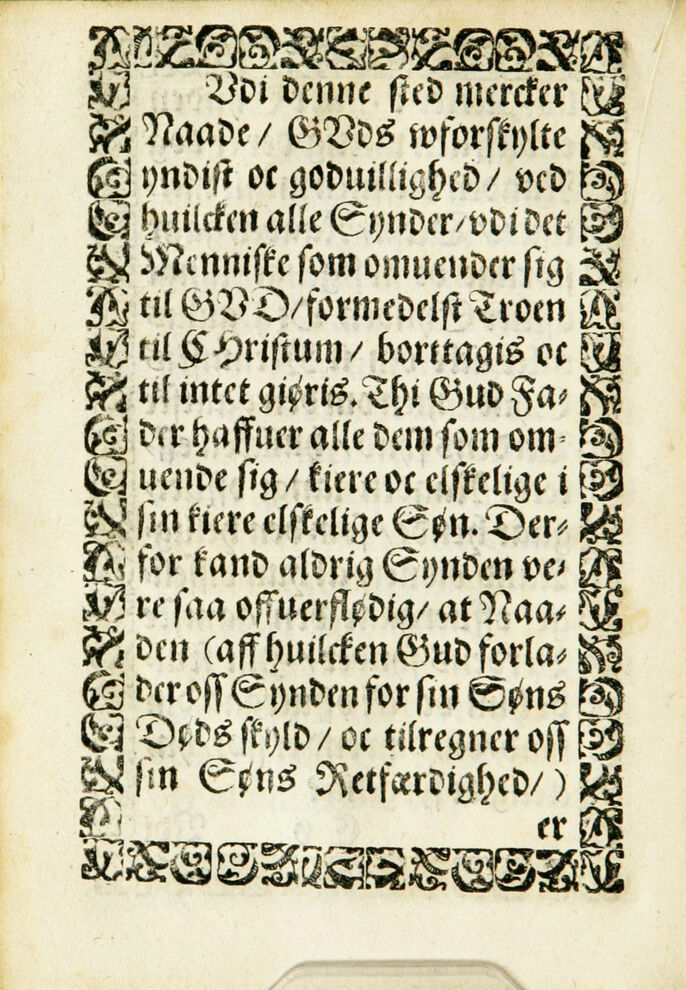 Vdi denne sted mercker
Naade / GVds wforskylte
yndist oc goduillighed / ved
huilcken alle Synder/vdi det
Menniske som omuender sig
til GVD/formedelst Troen
til CHristum / borttagis oc
til intet giøris. Thi Gud Fa-
der haffuer alle dem som om-
uende sig / kiere oc elskelige i
sin kiere elskelige Søn. Der-
for kand aldrig Synden ve-
re saa offuerflødig/ at Naa-
den (aff huilcken Gud forla-
der oss Synden for sin Søns
Døds skyld / oc tilregner oss
sin Søns Retfærdighed/ )
er